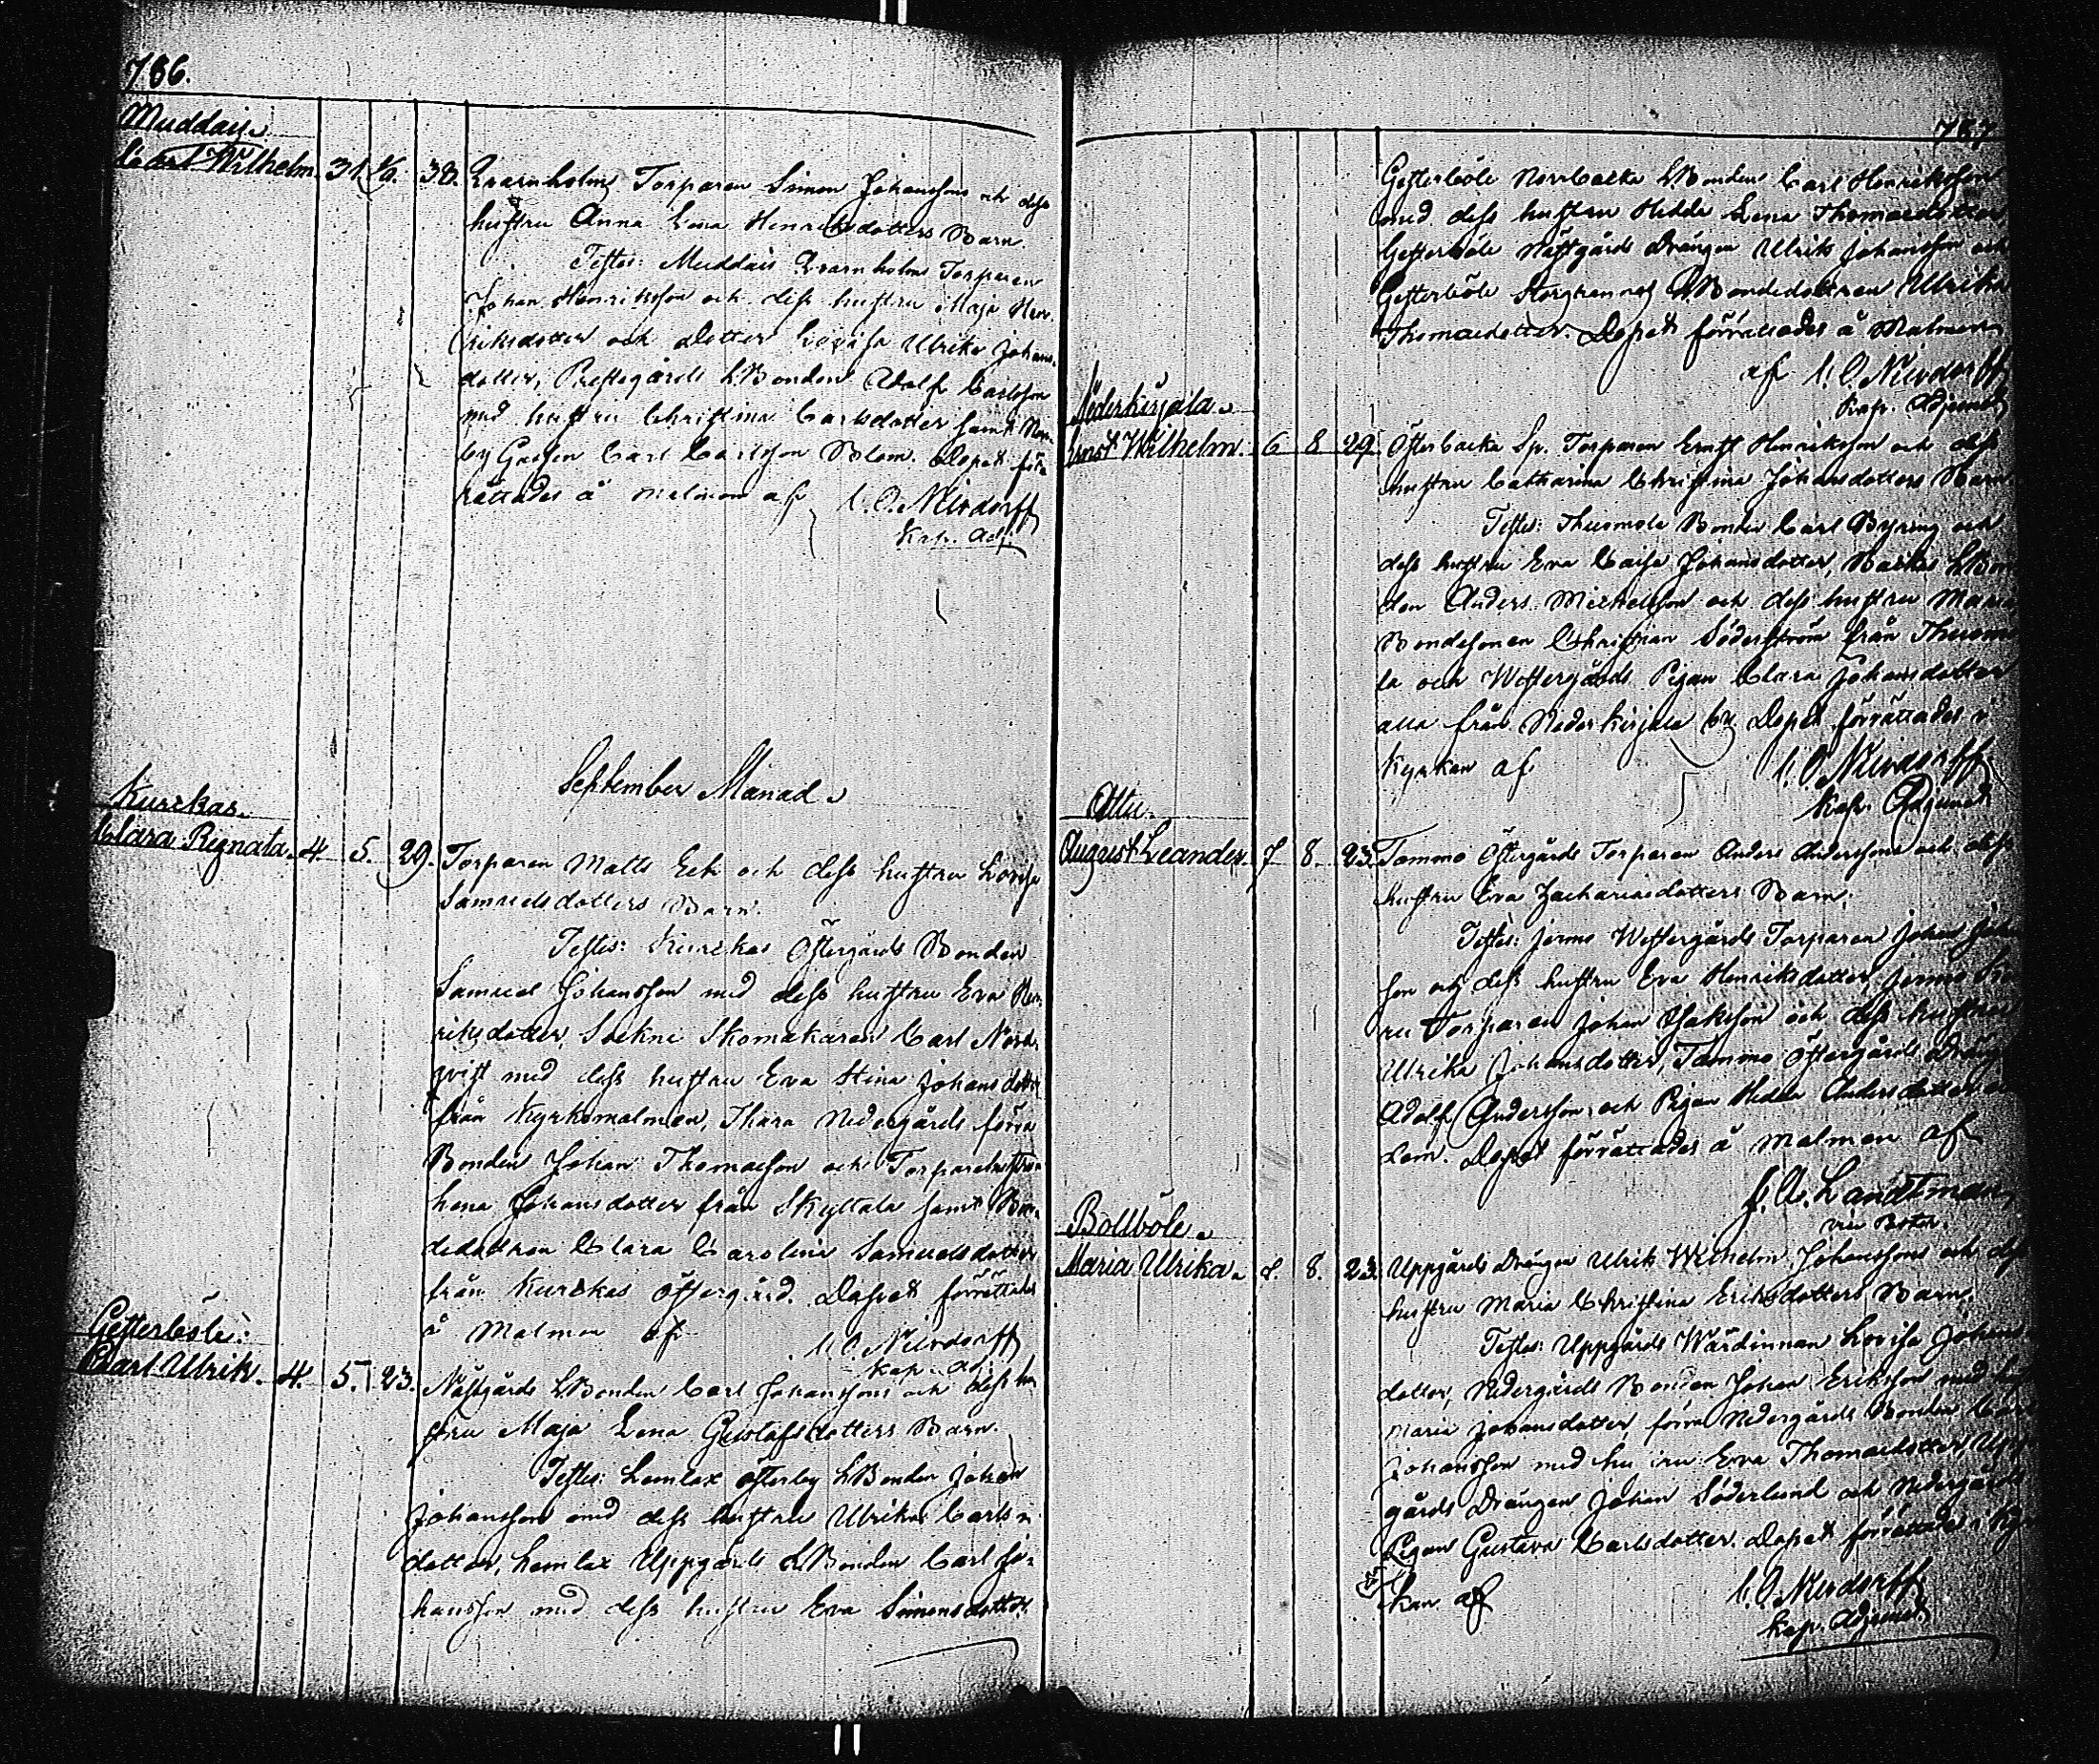 786.
Muddais
Carl Wilhelm. 31. 38. Qvarnholms Torparen Simon Johanssons och dess
hustru Anna Lena Henriksdotters Barn.
Testes: Muddais Qvarnholms Torparen
Johan Henriksson och dess hustru Maja Hen-
riksdotter och dotter Lovisa Ulrika Johans-
dotter, Prestegårds LBonden Adolf Carlsson
med hustru Christina Carlsdotter samt
by Gossen Carl Carlsson Blom. Dopet för-
rättades å Malmen af C. O. Neirdorff
Kap. Adj.
September Månad
Kurckas.
Clara Regnata. 4. 5. 29. Torparen Matts Eck och dess hustru Lovisa
Samuelsdotters Barn.
Testes: Kurckas Östergårds Bonden
Samuel Johansson med dess hustru Eva Hen-
riksdotter, Sockne Skomakaren Carl Nord-
qvist med dess hustru Eva Stina Johansdotter
från Kyrkomalmen, Thara Nedergårds förra
Bonden Johan Thomasson och Torparehustrun
Lena Johansdotter från Skyttala samt Bon-
dedottren Clara Carolina Samuelsdotter
från Kurckas Östergård. Dopet förrättades
å Malmen af C. O. Neirdorff
Kap. Adj.
Gesterböle:
Carl Ulrik. 4. 5. 23. Nästgårds LBonden Carl Johanssons och dess hu-
stru Maja Lena Gustafsdotters Barn.
Testes: Lemlax Österby LBonden Johan
Johansson med dess hustru Ulrika Carls-
dotter, Lemlax Uppgårds LBonden Carl Jo-
hansson med dess hustru Eva Simonsdotter.
787
Gesterböle Norrbacka LBonden Carl Henriksson
med dess hustru Hedda Lena Thomasdotter
Gesterböle Nästgårds Drängen Ulrik Johansson och
Gesterböle LBondedottren Ulrika
Thomasdotter. Dopet förrättades å Malmen
af C. O. Neirdorff
Kap. Adjunct
Nederkirjala
Ernst Wilhelm. 6 8 29. Österbacka Sp. Torparen Ernst Henriksson och dess
hustru Catharina Christina Johansdotters Barn.
Testes: Thuomola Bonden Carl Byring och
dess hustru Eva Caisa Johansdotter, Backas LBon-
den Anders Michelsson och dess hustru Maria
Bondesonen Christian Söderström från Thuomo-
la och Westergårds Pigan Clara Johansdotter
alla från Nederkirjala by. Dopet förrättades i
Kyrkan af C. O. Neirdorff
Kap. Adjunct
Attu.
August Leander. 7 8. 23. Tammo Östergårds Torparen Anders Anderssons och dess
hustru Eva Zachariasdotters Barn.
Testes: Jermo Westergårds Torparen Johan Johans-
son och dess hustru Eva Henriksdotter, Jermo
Torparen Johan Isaksson och dess hustru
Ulrika Johansdotter, Tammo Östergårds Dräng
Adolf Andersson och Pigan Hedda Andersdotter
Dopet förrättades å Malmen af
Landtman
Bollböle
Maria Ulrika. 7. 8. 23. Uppgårds Drängen Ulrik Wilhelm Johanssons och dess
hustru Maria Christina Eriksdotters Barn.
Testes: Uppgårds Wärdinnan Lovisa Johans-
dotter, Nedergårds Bonden Johan Eriksson med
Maria Johansdotter, förra Nedergårds Bonden Carl
Johansson med hustru Eva Thomasdotter, Upp-
gårds Drängen Johan Söderlund och Nedergårds
Pigan Gustava Carlsdotter. Dopet förrättades i Kyr-
kan af C. O. Neirdorff
Kap. Adjunct